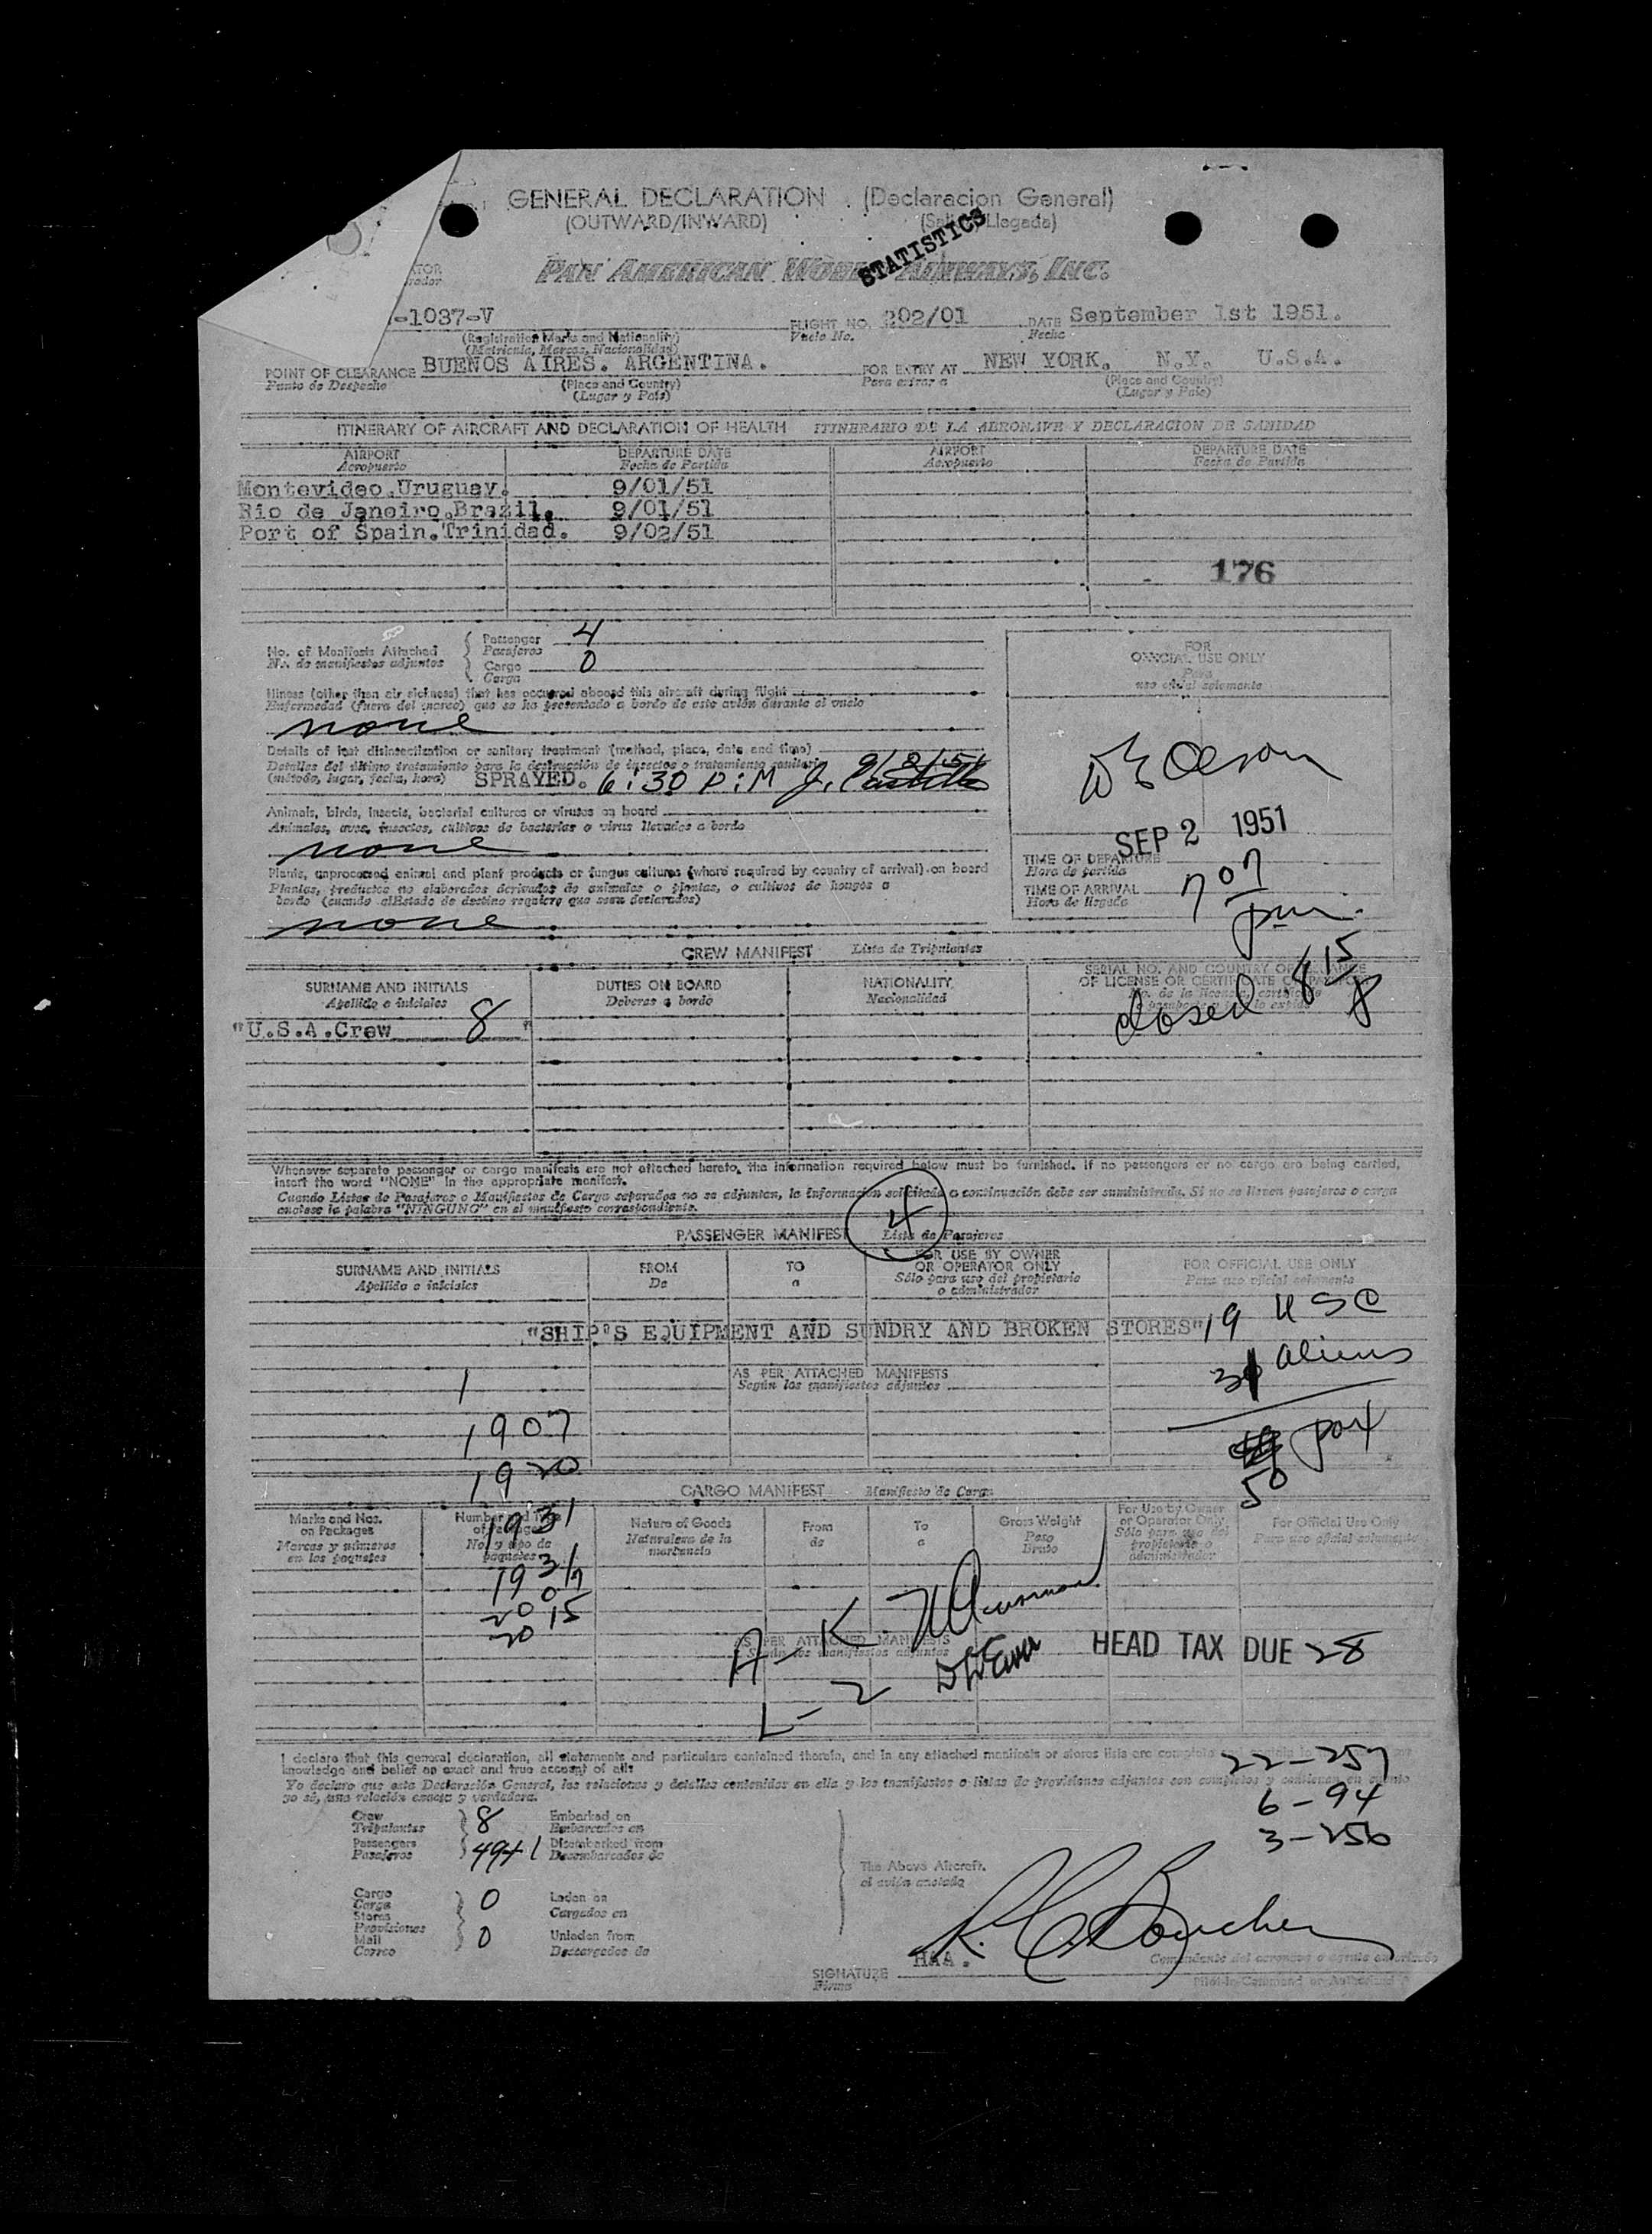 GENERAL DECLARATION (Declaracion General)
(OUTWARD/INWARD)
STATISTICS
PAN AMERICAN WORLD AIRWAYS, INC.
-1037-V FLIGHT NO. 202/01 DATE September 1st 1951.
(Registration Marks and Nationality) Vuelo No. Fecha
(Matricula, Marcas, Nacionalidad)
POINT OF CLEARANCE BUENOS AIRES. ARGENTINA. FOR ENTRY AT NEW YORK, N.Y. U.S.A.
Punto de Despacho (Place and Country) Para entrar a (Place and Country)
(Lugar y País) (Lugar y País)
ITINERARY OF AIRCRAFT AND DECLARATION OF HEALTH ITINERARIO DE LA AERONAVE Y DECLARACION DE SANIDAD
AIRPORT DEPARTURE DATE AIRPORT DEPARTURE DATE
Aeropuerto Fecha de Partida Aeropuerto Fecha de Partida
Montevideo.Uruguay. 9/01/51
Rio de Janeiro.Brazil. 9/01/51
Port of Spain.Trinidad. 9/02/51
176
No. of Manifests Attached Passenger 4
No. de manifiestos adjuntos Pasajeros
Cargo 0
Carga
FOR
OFFICIAL USE ONLY
Para
uso oficial solamente
Illness (other than air sickness) that has occurred aboard this aircraft during flight
Enfermedad (fuera del mareo) que se ha presentado a bordo de este avión durante el vuelo
none
Details of last disinsectization or sanitary treatment (method, place, date and time)
Detalles del último tratamiento para la destrucción de insectos o tratamiento sanitario
(método, lugar, fecha, hora) SPRAYED. 6:30 P:M
W E Olson
Animals, birds, insects, bacterial cultures or viruses on board
Animales, aves, insectos, cultivos de bacterias o virus llevados a bordo
none
SEP 2 1951
Plants, unprocessed animal and plant products or fungus cultures (where required by country of arrival) on board
Plantas, productos no elaborados derivados de animales o plantas, o cultivos de hongos a
bordo (cuando el Estado de destino requiere que sean declarados)
none
TIME OF DEPARTURE
Hora de partida
TIME OF ARRIVAL 7 07 pm.
Hora de llegada
CREW MANIFEST Lista de Tripulantes
closed 8 15
SURNAME AND INITIALS DUTIES ON BOARD NATIONALITY
Apellido e iniciales Deberes a bordo Nacionalidad
"U.S.A.Crew 8 "
Whenever separate passenger or cargo manifests are not attached hereto, the information required below must be furnished. If no passengers or no cargo are being carried,
insert the word "NONE" in the appropriate manifest.
Cuando Listas de Pasajeros o Manifiestos de Carga separados no se adjuntan, la información solicitada a continuación debe ser suministrada. Si no se llevan pasajeros o carga
anótese la palabra "NINGUNO" en el manifiesto correspondiente.
4
PASSENGER MANIFEST Lista de Pasajeros
SURNAME AND INITIALS FROM TO FOR USE BY OWNER OR OPERATOR ONLY FOR OFFICIAL USE ONLY
Apellido e iniciales De a Sólo para uso del propietario o administrador Para uso oficial solamente
"SHIP'S EQUIPMENT AND SUNDRY AND BROKEN STORES"
19 USC
31 aliens
AS PER ATTACHED MANIFESTS
Según los manifiestos adjuntos
1
1907
1920
pax
50
CARGO MANIFEST Manifiesto de Carga
1931
Marks and Nos. on Packages Number and Type of Packages Nature of Goods From To Gross Weight For Use by Owner or Operator Only For Official Use Only
Marcas y números en los paquetes No. y tipo de paquetes Naturaleza de la mercancía de a Peso Bruto Sólo para uso del propietario o administrador Para uso oficial solamente
2007
2015
AS PER ATTACHED MANIFESTS
Según los manifiestos adjuntos
A - K
L - Z
HEAD TAX DUE 28
I declare that this general declaration, all statements and particulars contained therein, and in any attached manifests or stores lists are complete
knowledge and belief an exact and true account of all:
Yo declaro que esta Declaración General, las relaciones y detalles contenidos en ella y los manifiestos o listas de provisiones adjuntos son completos y contienen en cuanto
yo sé, una relación exacta y verdadera.
22-257
6-94
3-256
Crew 8 Embarked on
Tripulantes Embarcados en
Passengers 49+1 Disembarked from
Pasajeros Desembarcados de
The Above Aircraft.
el avión anotado
Cargo 0 Laden on
Carga Cargados en
Stores
Provisiones
Mail 0 Unladen from
Correo Descargados de
HAA.
SIGNATURE
Firma
Comandante del aeronave o agente autorizado
Pilot-in-Command or Authorized